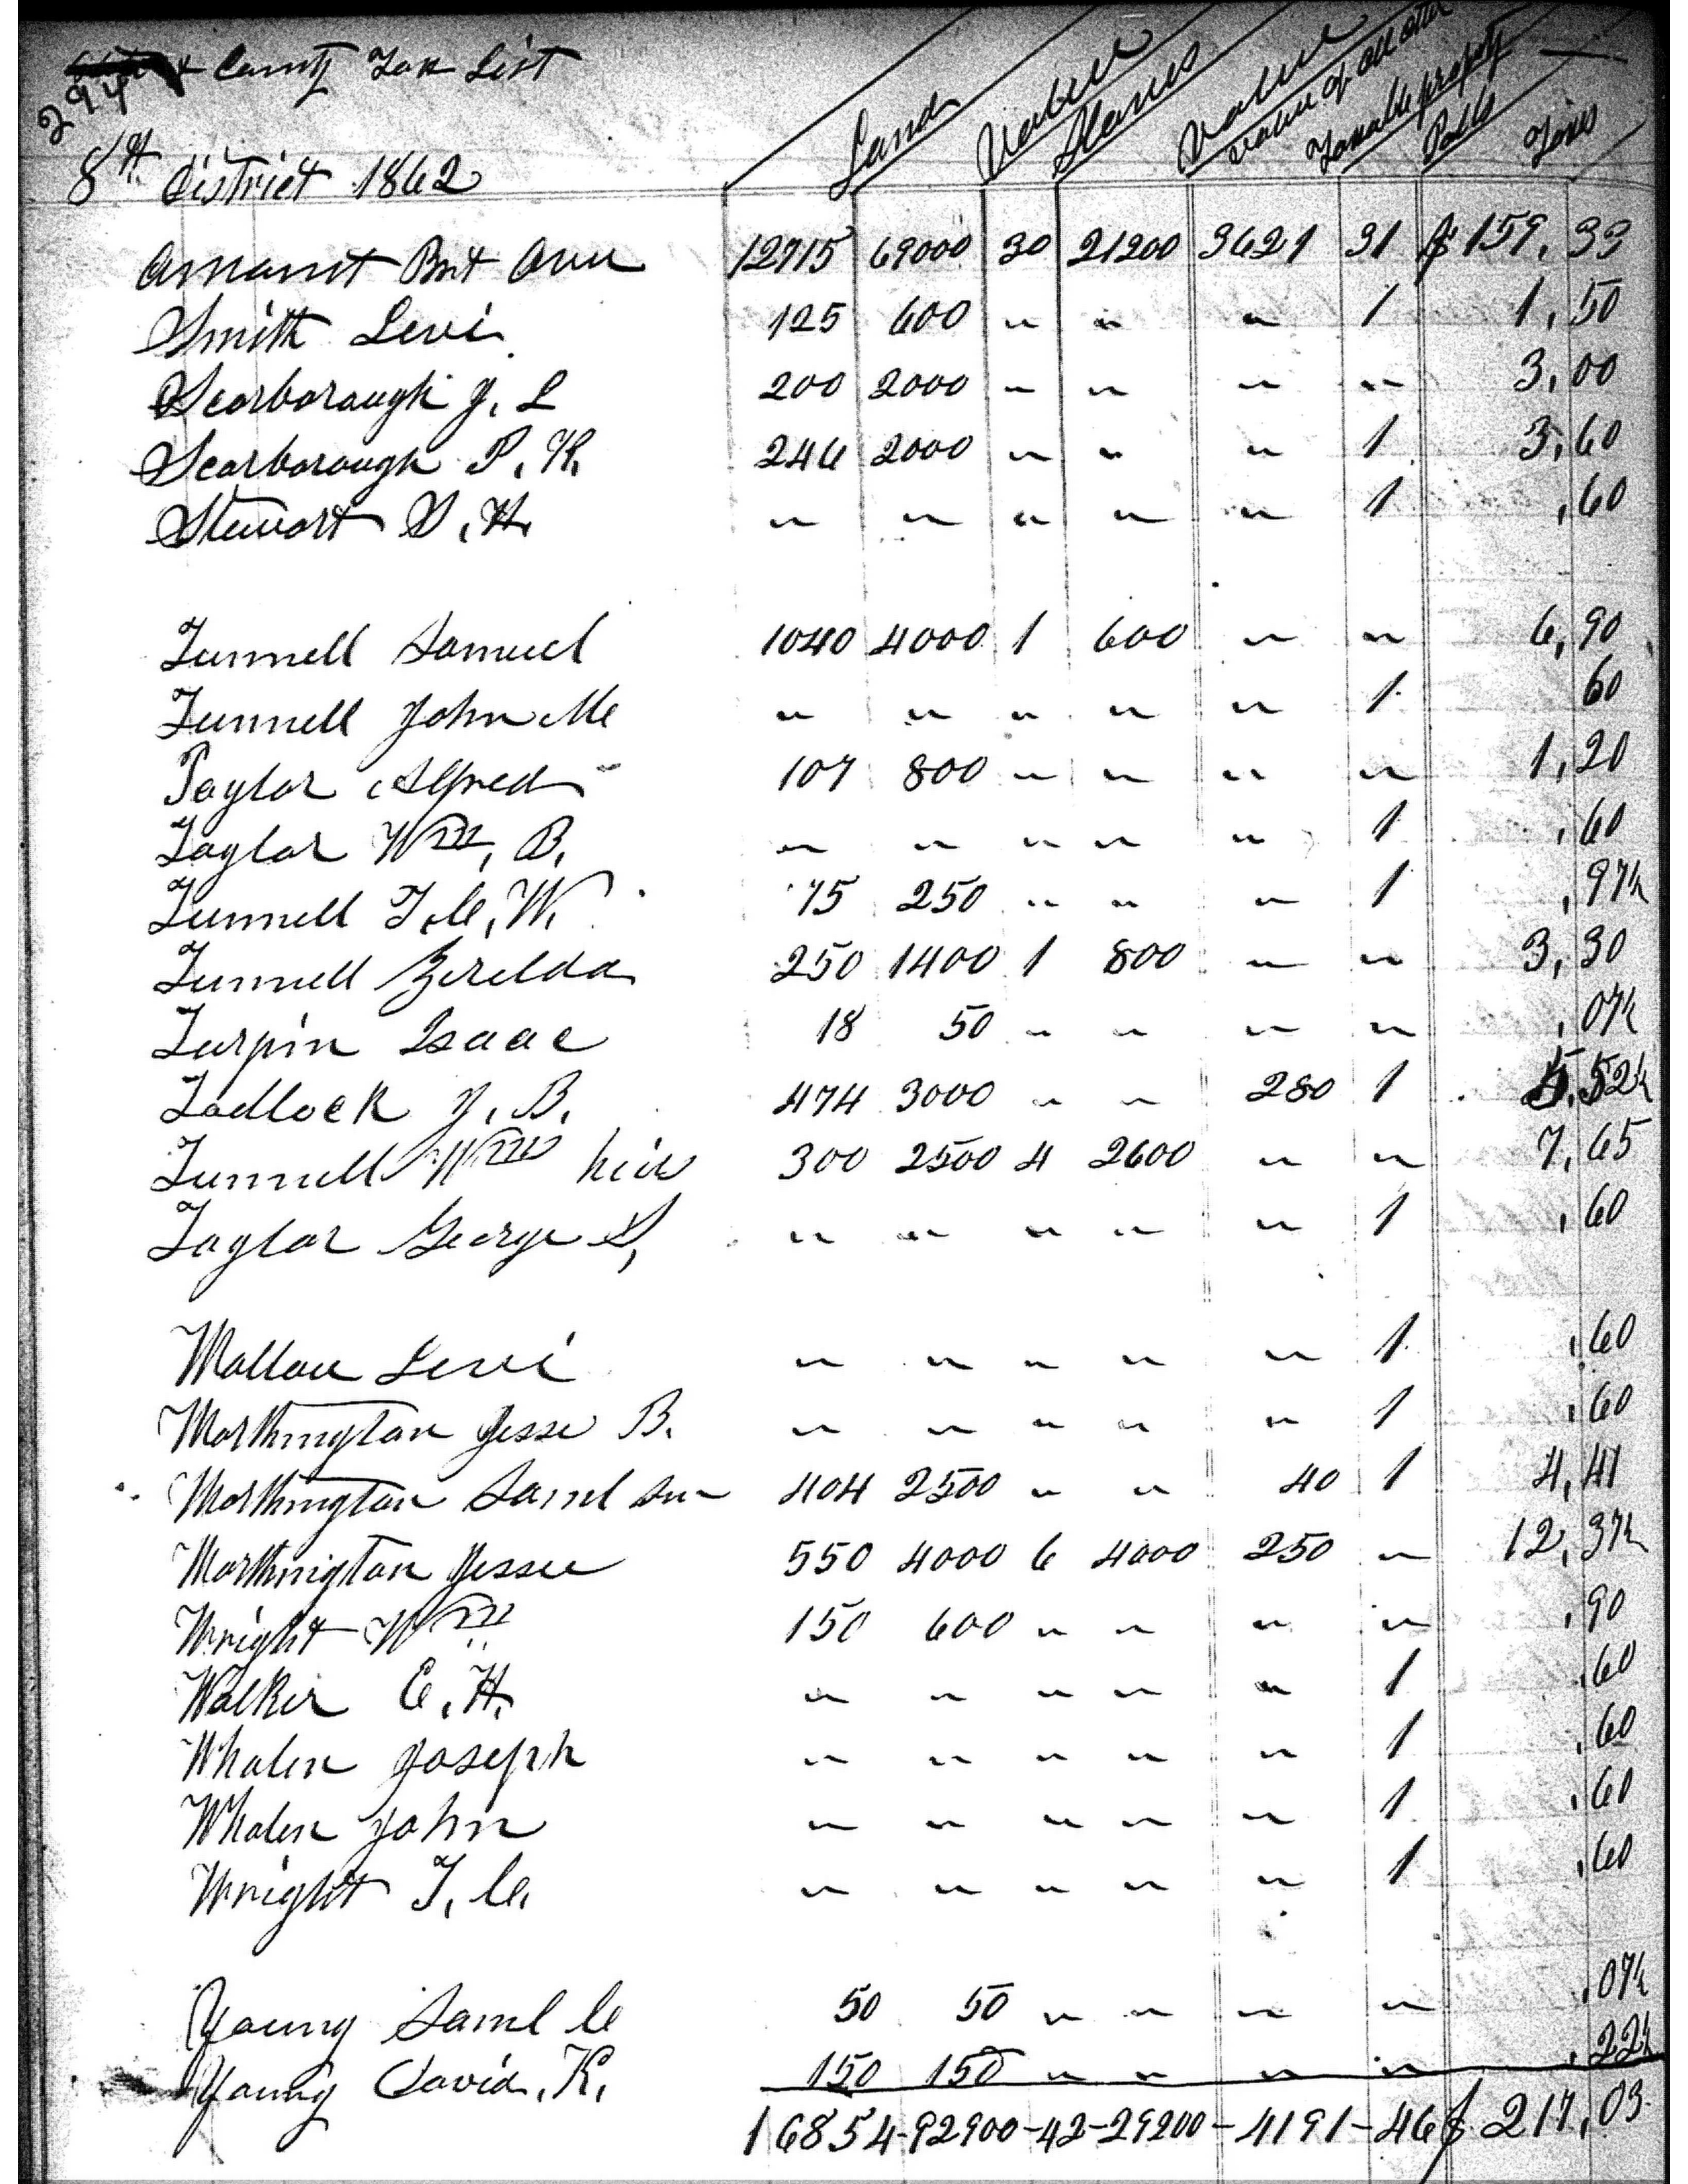 County Tax List
294
8th District 1862
Land Value Slaves Value Value of all other Taxable property Polls Taxes
Amount Brt Over 12715 69000 30 21200 3621 31 $159,33
Smith Levi 125 600 " " " 1 1,50
Scarborough J. L 200 2000 " " " " 3,00
Scarborough P. K. 246 2000 " " " 1 3,60
Stewart S. H. " " " " " 1 ,60
Tunnell Samuel 1040 4000 1 600 " " 6,90
Tunnell John Mc " " " " " 1 60
Taylor Alfred 107 800 " " " " 1,20
Taylor Wm, B. " " " " " 1 ,60
Tunnell T. C. W. 75 250 " " " 1 ,97½
Tunnell Zerelda 250 1400 1 800 " " 3,30
Turpin Isaac 18 50 " " " " ,07½
Tadlock J. B. 474 3000 " " 280 1 5,52½
Tunnell Wm heir 300 2500 4 2600 " " 7,65
Taylor George S, " " " " " 1 ,60
Wallau Levi " " " " " 1 ,60
Worthington Jesse B. " " " " " 1 ,60
Worthington Saml Sen 404 2500 " " 40 1 4,41
Worthington Jesse 550 4000 6 4000 250 " 12,37½
Wright Wm 150 600 " " " " ,90
Walker E. H. " " " " " 1 ,60
Whalen Joseph " " " " " 1 ,60
Whalen John " " " " " 1 ,60
Wright T. C. " " " " " 1 ,60
Young Saml C 50 50 " " " " ,07½
Young David. K. 150 150 " " " " ,22½
16854-92900-42-29200-4191-46 $217,03